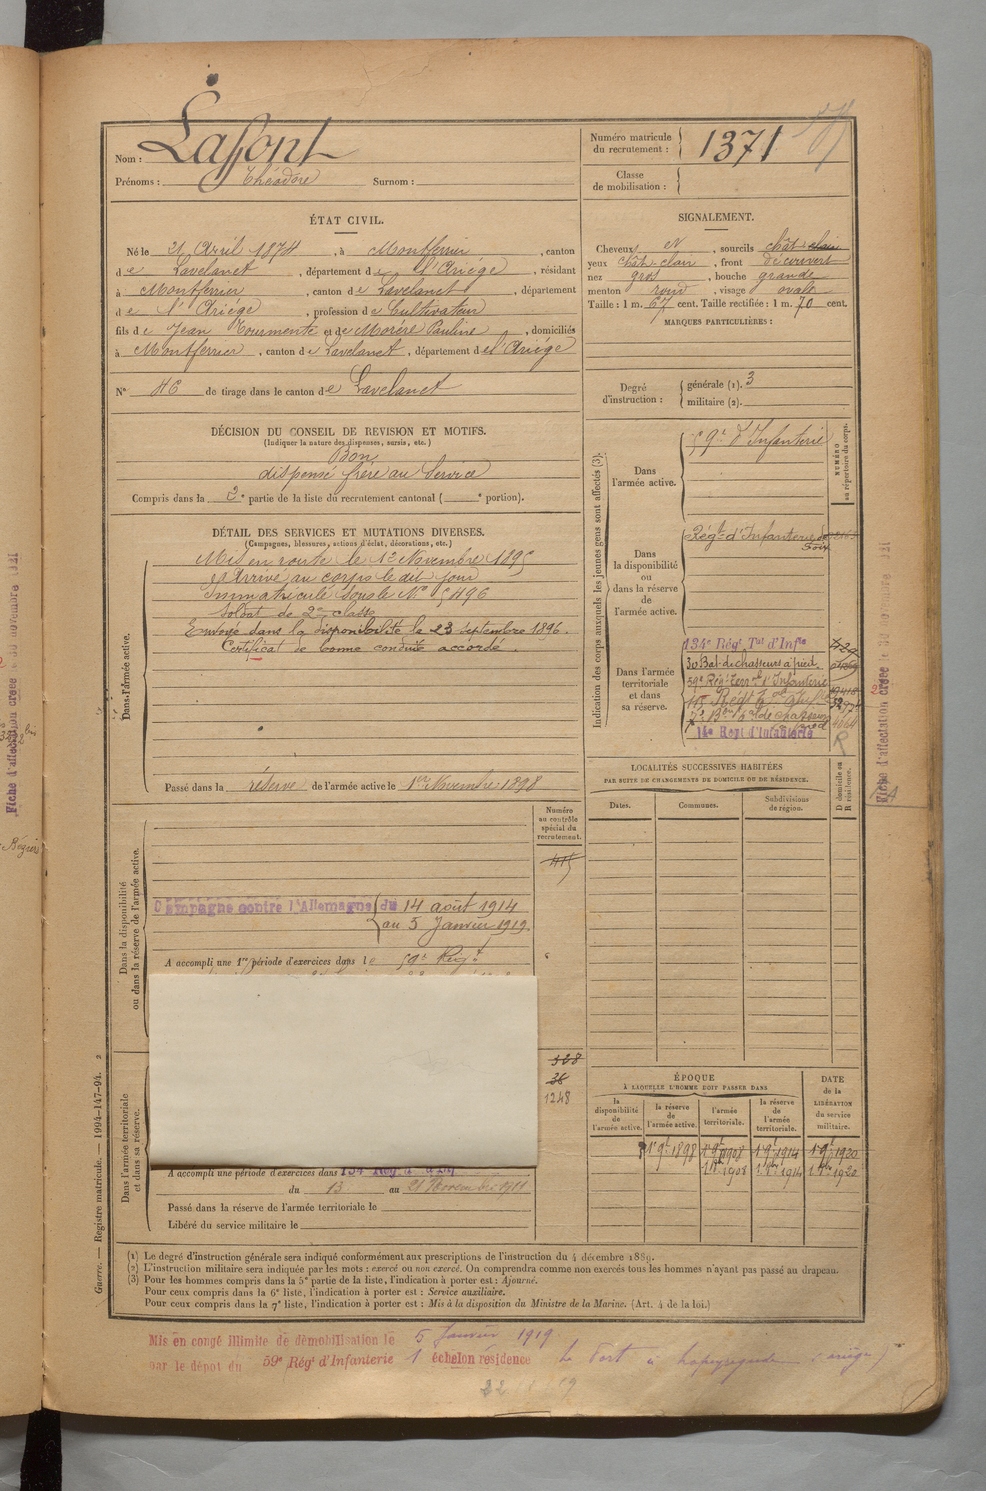 Nom : Laffont
Prénoms : Théodore Surnom :
Numéro matricule du recrutement : 1371
Classe de mobilisation :
ÉTAT CIVIL.
Né le 21 Avril 1874, à Montferrier, canton
de Lavelanet, département de l'Ariège, résidant
à Montferrier, canton de Lavelanet, département
de l'Ariège, profession de Cultivateur
fils de Jean Tourmente et de Morère Pauline, domiciliés
à Montferrier, canton de Lavelanet, département de l'Ariège
N° 46 de tirage dans le canton de Lavelanet
SIGNALEMENT.
Cheveux et, sourcils chât-clair
yeux chât-clair, front découvert
nez gros, bouche grande
menton rond, visage ovale
Taille : 1 m. 67 cent. Taille rectifiée : 1 m. 70 cent.
MARQUES PARTICULIÈRES :
Degré d'instruction : générale (1). 3
militaire (2).
DÉCISION DU CONSEIL DE REVISION ET MOTIFS.
(Indiquer la nature des dispenses, sursis, etc.)
Bon
dispensé frère au Service
Compris dans la 2e partie de la liste du recrutement cantonal ( e portion).
DÉTAIL DES SERVICES ET MUTATIONS DIVERSES.
(Campagnes, blessures, actions d'éclat, décorations, etc.)
Dans l'armée active.
Mis en route le 12 Novembre 1895
Arrivé au corps le dit jour
Immatriculé sous le N° 5496
Soldat de 2me classe
Envoyé dans la disponibilité le 23 septembre 1896.
Certificat de bonne conduite accordé.
Passé dans la réserve de l'armée active le 1er Novembre 1898
Indication des corps auxquels les jeunes gens sont affectés (3).
NUMÉRO au répertoire du corps.
Dans l'armée active.
59e d'Infanterie
Dans la disponibilité ou dans la réserve de l'armée active.
Régt d'Infanterie de Foix
Dans l'armée territoriale et dans sa réserve.
134e Régt Tal d'Infie
30 Bat de chasseurs à pied
59e Rég. Terr. d'Infanterie
14e Regt d'Infanterie
LOCALITÉS SUCCESSIVES HABITÉES
PAR SUITE DE CHANGEMENTS DE DOMICILE OU DE RÉSIDENCE.
Dates. Communes. Subdivisions de région. D domicile ou R résidence.
Dans la disponibilité ou dans la réserve de l'armée active.
Numéro au contrôle spécial du recrutement.
415
Campagne contre l'Allemagne du 14 août 1914
au 5 Janvier 1919.
A accompli une 1re période d'exercices dans le 59e Régt
Dans l'armée territoriale et dans sa réserve.
328
36
1248
A accompli une période d'exercices dans 134e Régt
du 13 au 21 Novembre 1911
Passé dans la réserve de l'armée territoriale le
Libéré du service militaire le
ÉPOQUE
À LAQUELLE L'HOMME DOIT PASSER DANS
la disponibilité de l'armée active. la réserve de l'armée active. l'armée territoriale. la réserve de l'armée territoriale.
DATE de la LIBÉRATION du service militaire.
1 9bre 1898 1 9bre 1908 1 9bre 1914 1 9bre 1920
1908 1914 1920
(1) Le degré d'instruction générale sera indiqué conformément aux prescriptions de l'instruction du 4 décembre 1889.
(2) L'instruction militaire sera indiquée par les mots : exercé ou non exercé. On comprendra comme non exercés tous les hommes n'ayant pas passé au drapeau.
(3) Pour les hommes compris dans la 5e partie de la liste, l'indication à porter est : Ajourné.
Pour ceux compris dans la 6e liste, l'indication à porter est : Service auxiliaire.
Pour ceux compris dans la 7e liste, l'indication à porter est : Mis à la disposition du Ministre de la Marine. (Art. 4 de la loi.)
Guerre. — Registre matricule. — 1994-147-94. 2
Mis en congé illimité de démobilisation le 5 Janvier 1919
par le dépot du 59e Régt d'Infanterie 1 échelon résidence Le Fort à (Ariège)
Fiche d'affectation créée le 30 novembre 1921
Fiche d'affectation créée le 30 novembre 1921
Béziers